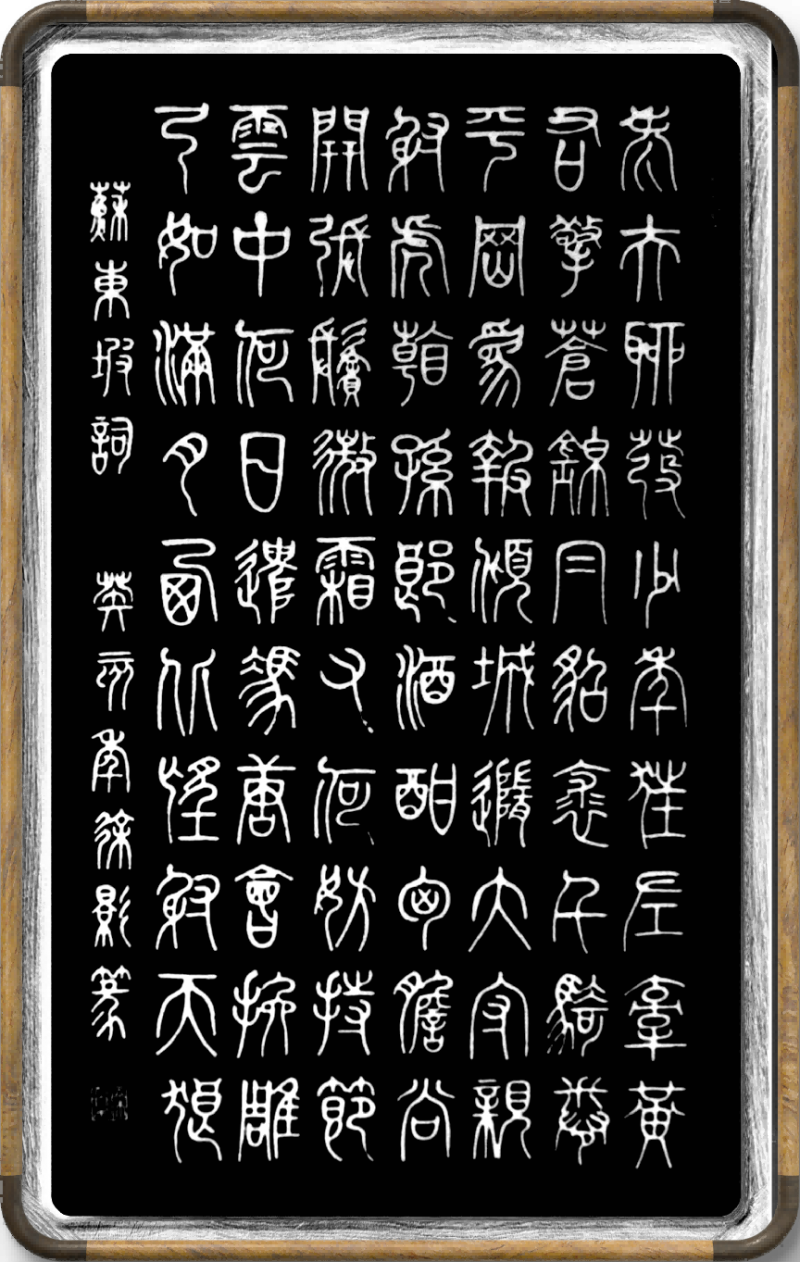 老夫聊發少年狂左牽黃
右擎蒼錦帽貂裘千騎卷
平岡為報傾城隨太守親
射虎看孫郎酒酣胸膽尚
開張鬢微霜又何妨持節
雲中何日遣馮唐會挽雕
弓如滿月西北望射天狼
蘇東坡詞 癸亥年徐影篆